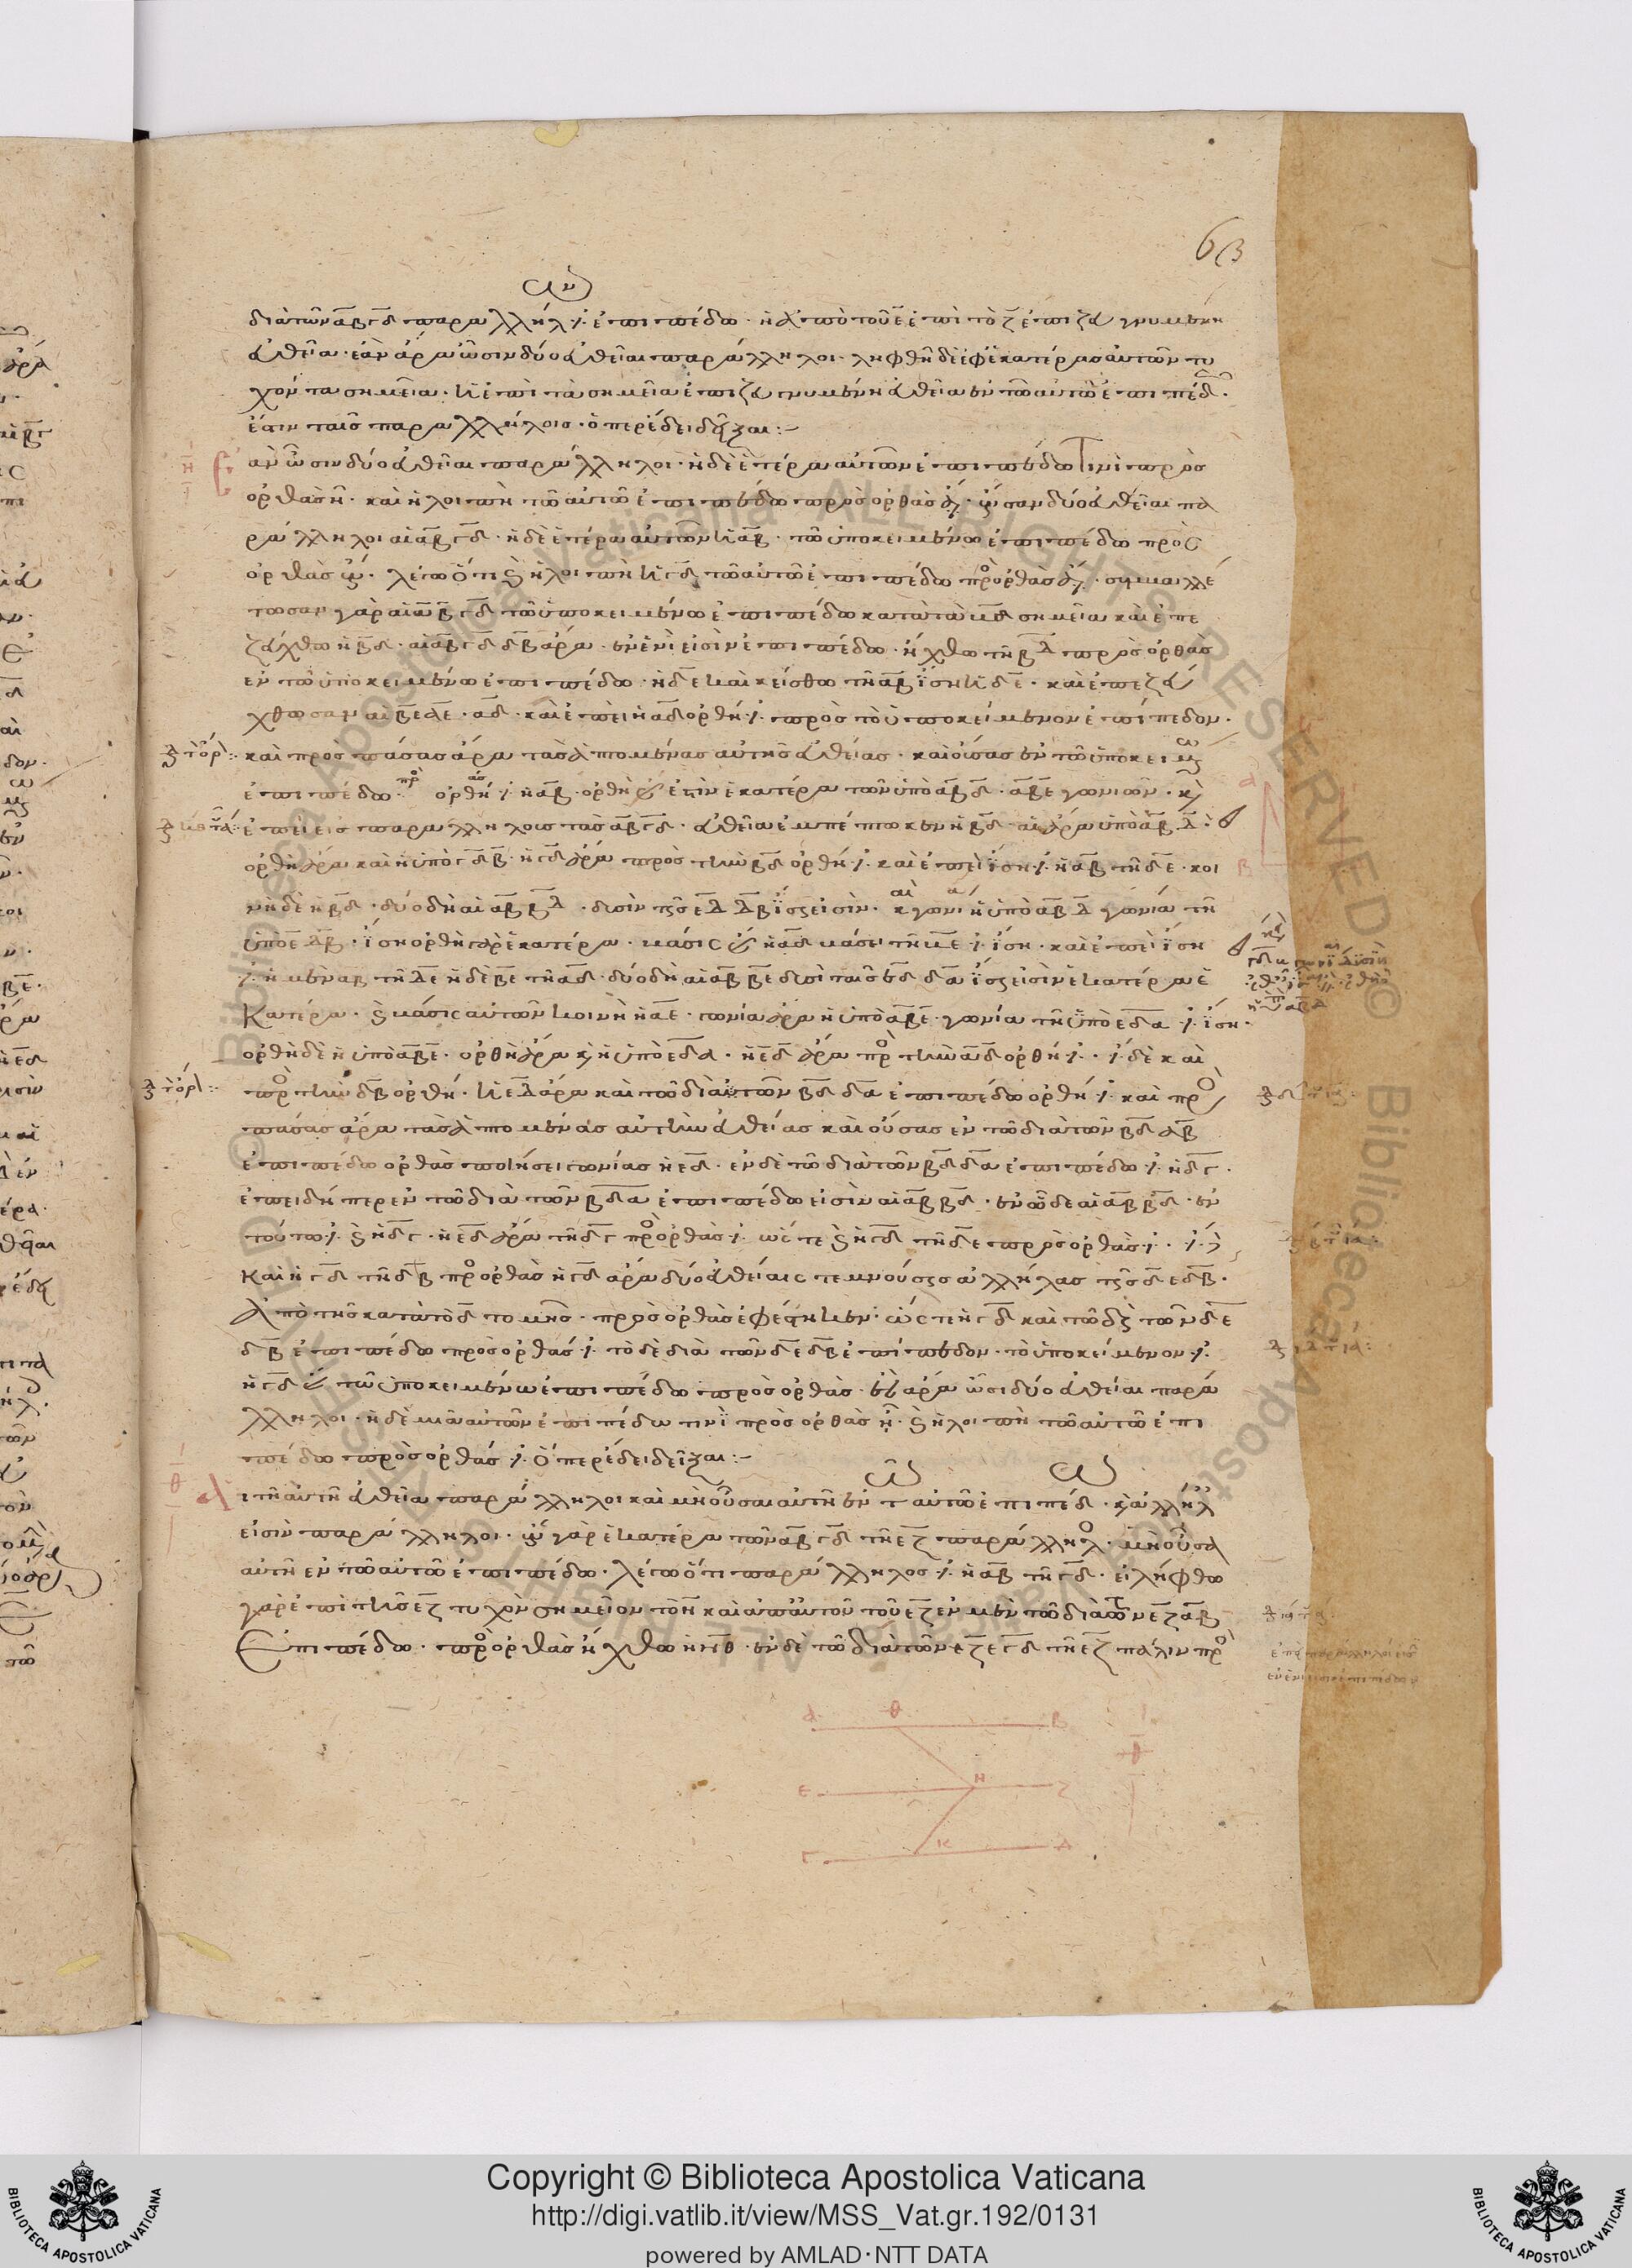 63
διὰ τῶν ΑΒ ΓΔ παραλλήλων ἐστὶν ἐπιπέδω· ἡ ἀπὸ τοῦ Ε ἐπὶ τὸ Ζ ἐπιζευγνυμένη
εὐθεῖα· ἐὰν ἄρα ὦσιν δύο εὐθεῖαι παράλληλοι· ληφθῆ δὲ ἐφ' ἑκατέρας αὐτῶν τυ
χόντα σημεῖα· ἡ ἐπὶ τὰ σημεῖα ἐπιζευγνυμένη εὐθεῖα ἐν τῶ αὐτῶ ἐπιπέδω·
ἐστιν ταῖς παραλλήλοις· ὅπερ ἔδει δεῖξαι:-
Ἐὰν ὦσιν δύο εὐθεῖαι παράλληλοι· ἡ δὲ ἑτέρα αὐτῶν ἐπιπέδω τινὶ πρὸς
ὀρθὰς ἦ· καὶ ἡ λοιπὴ τῶ αὐτῶ ἐπιπέδω πρὸς ὀρθὰς ἔσται· ἔστωσαν δύο εὐθεῖαι πα
ράλληλοι αἱ ΑΒ ΓΔ· ἡ δὲ ἑτέρα αὐτῶν ἡ ΑΒ· τῶ ὑποκειμένω ἐπιπέδω πρὸς
ὀρθὰς ἔστω· λέγω ὅτι καὶ ἡ λοιπὴ ἡ ΓΔ τῶ αὐτῶ ἐπιπέδω πρὸς ὀρθὰς ἔσται· συμβαλλέ
τωσαν γὰρ αἱ ΑΒ ΓΔ τῶ ὑποκειμένω ἐπιπέδω κατὰ τὰ ΒΔ σημεῖα καὶ ἐπε
ζεύχθω ἡ ΒΔ· αἱ ΑΒ ΓΔ ΔΒ ἄρα· ἐν ἑνί εἰσιν ἐπιπέδω· ἤχθω τῆ ΒΔ πρὸς ὀρθὰς
ἐν τῶ ὑποκειμένω ἐπιπέδω· ἡ ΔΕ καὶ κείσθω τῆ ΑΒ ἴση ἡ ΔΕ· καὶ ἐπεζεύ
χθωσαν αἱ ΒΕ ΑΕ· ΑΔ· καὶ ἐπεὶ ἡ ΑΒ ὀρθή ἐστι πρὸς τὸ ὑποκείμενον ἐπίπεδον·
καὶ προς πάσας ἄρα τὰς ἁπτομένας αὐτῆς εὐθείας· καὶ οὔσας ἐν τῶ ὑποκειμένω
ἐπιπέδω· πρὸς ὀρθάς ἐστι ἡ ΑΒ· ὀρθὴ ἄρα ἐστὶν ἑκατέρα τῶν ὑπὸ ΑΒΔ· ΑΒΕ γωνιῶν· καὶ
ἐπεὶ εἰς παραλλήλους τὰς ΑΒ ΓΔ· εὐθεῖα ἐμπέπτωκεν ἡ ΒΔ· αἱ ἄρα ὑπὸ ΑΒΔ
ὀρθὴ ἄρα καὶ ἡ ὑπὸ ΓΔΒ· ἡ ΓΔ ἄρα πρὸς τὴν ΒΔ ὀρθή ἐστι· καὶ ἐπεὶ ἴση ἐστὶ ἡ ΑΒ τῆ ΔΕ· κοι
νὴ δὲ ἡ ΒΔ· δύο δὴ αἱ ΑΒ ΒΔ· δυσὶν ταῖς ΕΔ ΔΒ ἴσαι εἰσίν· καὶ γωνία ἡ ὑπὸ ΑΒΔ γωνία τῆ
ὑπὸ ΕΔΒ· ἴση ὀρθὴ γὰρ ἑκατέρα· βάσις ἄρα ἡ ΑΔ βάσει τῆ ΒΕ ἐστὶ ἴση· καὶ ἐπεὶ ἴση
ἐστὶ ἡ μὲν ΑΒ τῆ ΔΕ ἡ δὲ ΒΕ τῆ ΑΔ· δύο δὴ αἱ ΑΒ ΒΕ δυσὶ ταῖς ΕΔ ΔΑ ἴσαι εἰσὶν ἑκατέρα ἑ
κατέρα· καὶ βάσις αὐτῶν κοινὴ ἡ ΑΕ· γωνία ἄρα ἡ ὑπὸ ΑΒΕ· γωνία τῆ ὑπὸ ΕΔΑ ἐστὶ ἴση·
ὀρθὴ δὲ ἡ ὑπὸ ΑΒΕ· ὀρθὴ ἄρα καὶ ἡ ὑπὸ ΕΔΑ· ἡ ΕΔ ἄρα πρὸς τὴν ΑΔ ὀρθή ἐστι· ἔστι δὲ καὶ
πρὸς τὴν ΔΒ ὀρθή· ἡ ΕΔ ἄρα καὶ τῶ διὰ τῶν ΒΔ ΔΑ ἐπιπέδω ὀρθή ἐστι καὶ πρὸς
πάσας ἄρα τὰς ἁπτομένας αὐτὴν εὐθείας καὶ οὔσας ἐν τῶ διὰ τῶν ΒΔ ΑΒ
ἐπιπέδω ὀρθὰς ποιήσει γωνίας ἡ ΕΔ· ἐν δὲ τῶ διὰ τῶν ΒΔ ΔΑ ἐπιπέδω ἐστὶ ἡ ΔΓ·
ἐπειδήπερ ἐν τῶ διὰ τῶν ΒΔΑ ἐπιπέδω εἰσὶν αἱ ΑΒ ΒΔ· ἐν ὧ δε αἱ ΑΒ ΒΔ· ἐν
τούτω ἐστὶ καὶ ἡ ΔΓ· ἡ ΕΔ ἄρα τῆ ΔΓ πρὸς ὀρθὰς ἐστὶ ὥστε καὶ ἡ ΓΔ τῆ ΔΕ πρὸς ὀρθὰς ἐστὶ· ἔστι δὲ
καὶ ἡ ΓΔ τῆ ΔΒ πρὸς ὀρθὰς ἡ ΓΔ ἄρα δύο εὐθείαις τεμνούσαις ἀλλήλας ταῖς ΔΕ ΔΒ·
ἀπὸ τῆς κατὰ τὸ Δ τομῆς· πρὸς ὀρθὰς ἐφέστηκεν· ὥστε ἡ ΓΔ καὶ τῶ διὰ τῶν ΔΕ
ΔΒ ἐπιπέδω πρὸς ὀρθάς ἐστὶ τὸ δὲ διὰ τῶν ΔΕ ΔΒ ἐπίπεδον· τὸ ὑποκείμενον ἐστὶ
ἡ ΓΔ ἄρα τῶ ὑποκειμένω ἐπιπέδω πρὸς ὀρθάς· ἐὰν ἄρα ὦσι δύο εὐθεῖαι παρά
λληλοι· ἡ δὲ μία αὐτῶν ἐπιπέδω τινὶ πρὸς ὀρθὰς ἦ· καὶ ἡ λοιπὴ τῶ αὐτῶ ἐπι
πέδω πρὸς ὀρθάς ἐστὶ ὅπερ ἔδει δεῖξαι:-
Αἱ τῆ αὐτῆ εὐθεία παράλληλοι καὶ μὴ οὖσαι αὐτῆ ἐν τῶ αὐτῶ ἐπιπέδω· καὶ ἀλλήλαις
εἰσὶν παράλληλοι· ἔστω γὰρ ἑκατέρα τῶν ΑΒ ΓΔ τῆ ΕΖ παράλληλος· μὴ οὖσα
αὐτῆ ἐν τῶ αὐτῶ ἐπιπέδω· λέγω ὅτι παράλληλος ἐστὶ ἡ ΑΒ τῆ ΓΔ· εἰλήφθω
γὰρ ἐπὶ τῆς ΕΖ τυχὸν σημεῖον τὸ Η καὶ ἀπ' αὐτοῦ τοῦ ΕΖ ἐν μὲν τῶ διὰ τῶν ΕΖ ΑΒ
Ἐπιπέδω· πρὸς ὀρθὰς ἤχθω ἡ ΗΘ· ἐν δὲ τῶ διὰ τῶν ΕΖ ΓΔ τῆ ΕΖ πάλιν πρὸς
Α Θ Β
Ε Η Ζ
Γ Κ Δ
Θ
© Biblioteca Apostolica Vaticana
ALL RIGHTS RESERVED
Copyright © Biblioteca Apostolica Vaticana
http://digi.vatlib.it/view/MSS_Vat.gr.192/0131
powered by AMLAD·NTT DATA
BIBLIOTECA APOSTOLICA VATICANA
BIBLIOTECA APOSTOLICA VATICANA